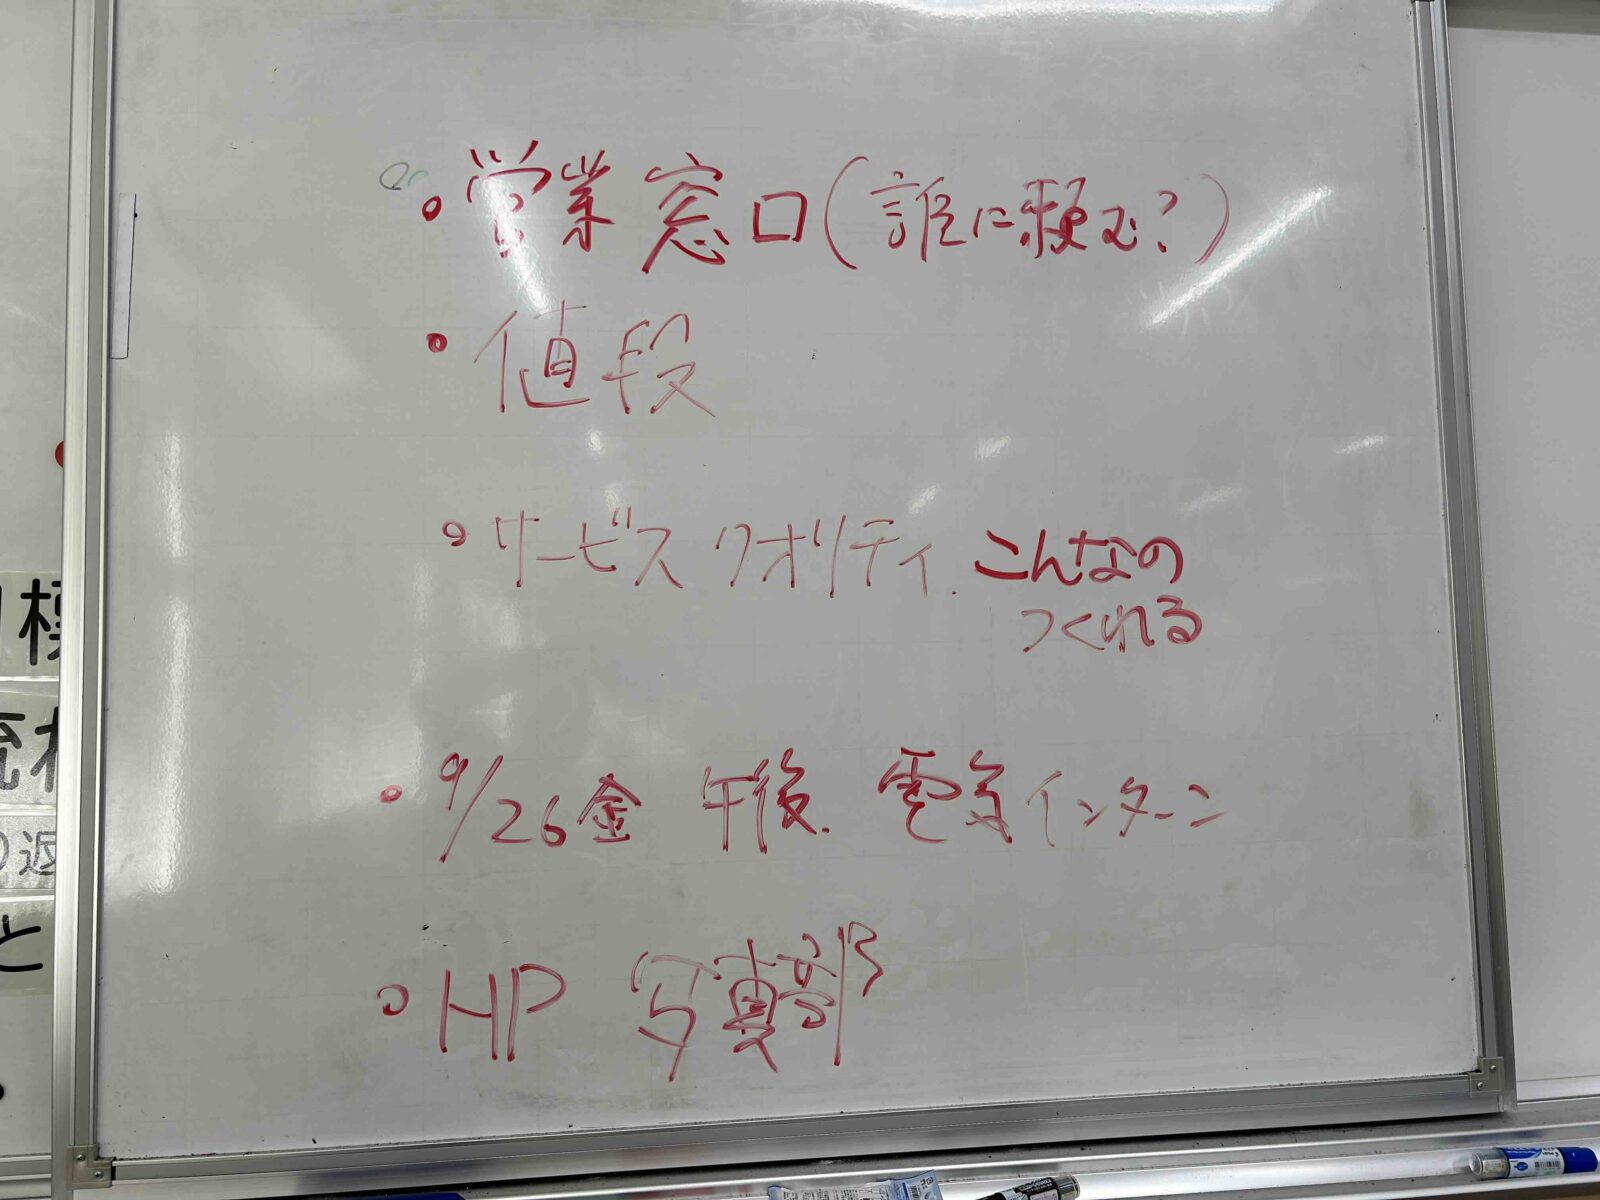 ・営業窓口(誰に頼む?)
・値段
・サービスクオリティ. こんなの
つくれる
・9/26金 午後. 電気インターン
・HP 写真部
標
流
返
と